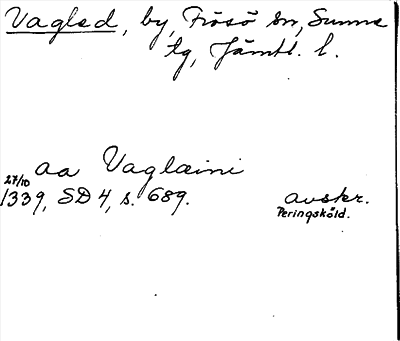 Vagled, by, Frösö sn, Sunne
tg, Jämtl. l.
aa Vaglæini
27/10
1339, SD 4, s. 689. avskr.
Peringsköld.